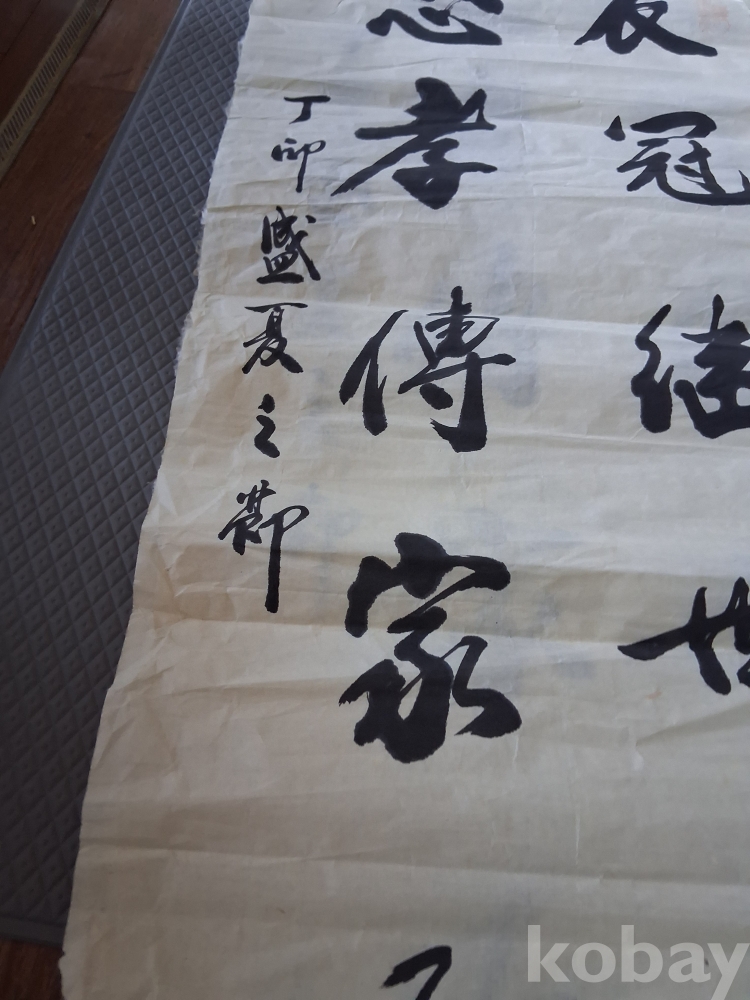 衣冠继世
忠孝傳家
丁卯盛夏之節
kobay